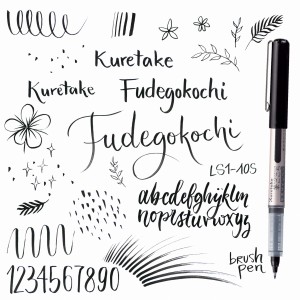 Kuretake
Kuretake Fudegokochi
Fudegokochi
LS1-10S
abcdefghijklm
nopqrstuvwxyz
1234567890
brush
pen